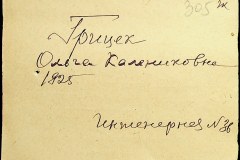 305
Грицек
Ольга Калениковна
1925
Инженерная № 36